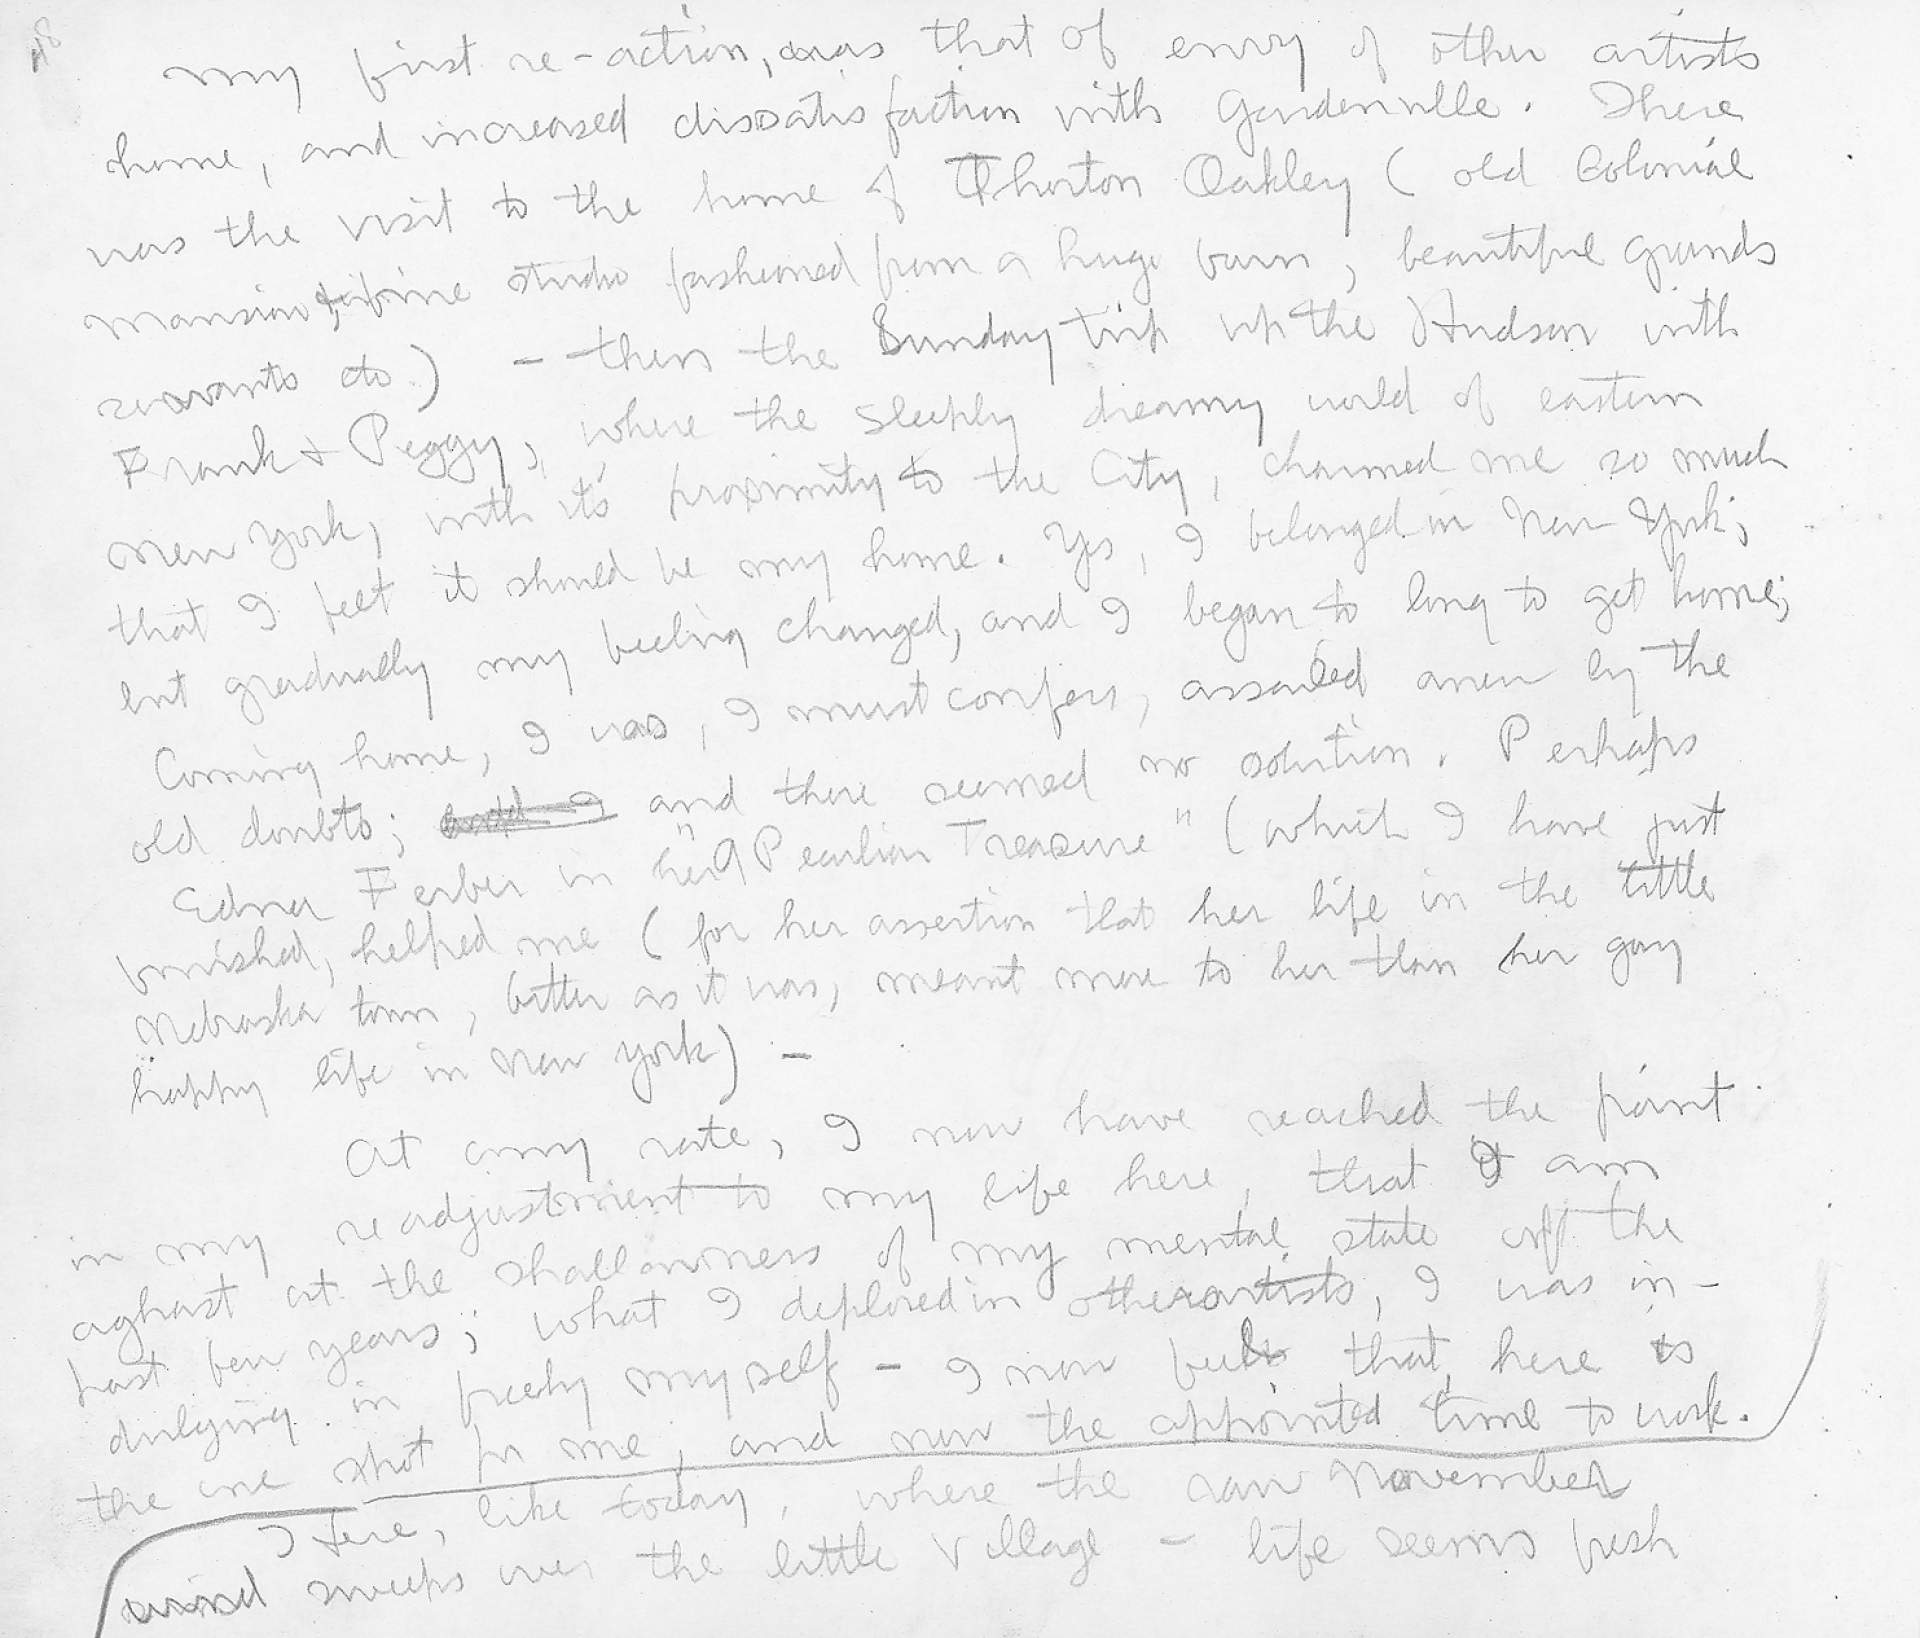 48
My first re-action, was that of envy of other artists
home, and increased dissatisfaction with Gardenville. There
was the visit to the home of Thorton Oakley (old Colonial
mansion, fine studio fashioned from a huge barn, beautiful grounds
servants etc.) – then the Sunday trip up the Hudson with
Frank + Peggy, where the sleeply dreamy world of eastern
New York, with its proximity to the City, charmed me so much
that I felt it should be my home. Yes, I belonged in New York;
but gradually my feeling changed, and I began to long to get home;
Coming home, I was, I must confess, assailed anew by the
old doubts; and I and there seemed no solution. Perhaps
Edna Ferber in her "A Peculiar Treasure" (which I have just
finished, helped me (for her assertion that her life in the little
Nebraska town, bitter as it was, meant more to her than her gay
happy life in New York) –
At any rate, I now have reached the point
in my readjustment to my life here, that I am
aghast at the shallowness of my mental state of the
past few years; what I deplored in other artists, I was in-
dulging in freely myself – I now feel that here is
the one spot for me, and now the appointed time to work.
Here, like today, where the raw November
wind sweeps over the little village – life seems fresh